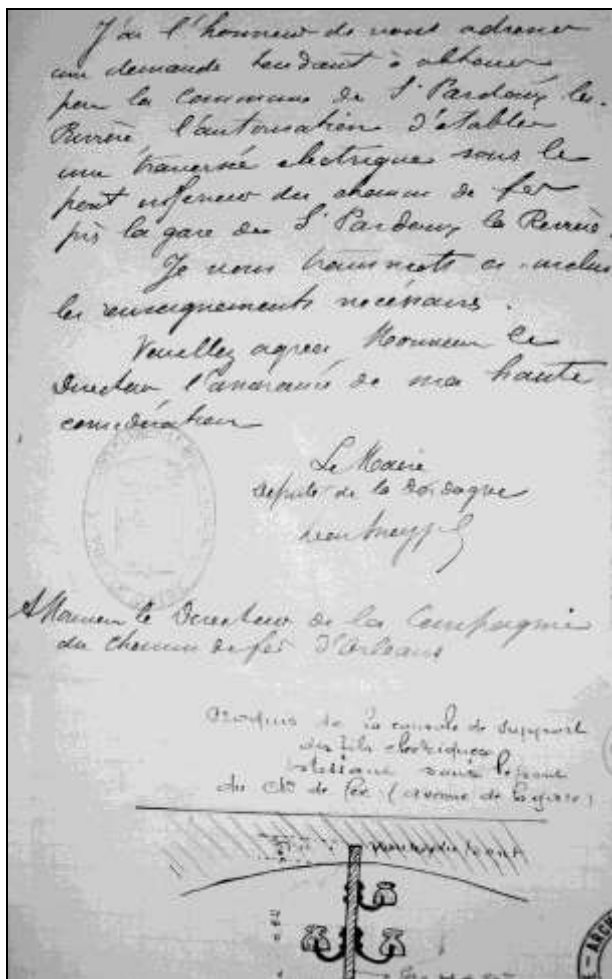 J'ai l'honneur de vous adresser
une demande tendant à obtenir
pour la commune de St Pardoux la
Rivière l'autorisation d'établir
une traversée electrique sous le
pont inférieur du chemin de fer
près la gare de St Pardoux la Rivière.
Je vous transmets ci-inclus
les renseignements nécessaires.
Veuillez agréer, Monsieur le
Directeur l'assurance de ma haute
considération
Le Maire
député de la Dordogne
A Monsieur le Directeur de la Compagnie
du Chemin de fer d'Orléans
Croquis de la console de support
des fils électriques
sous le pont
du Ch. de fer (avenue de la gare)
ARCH